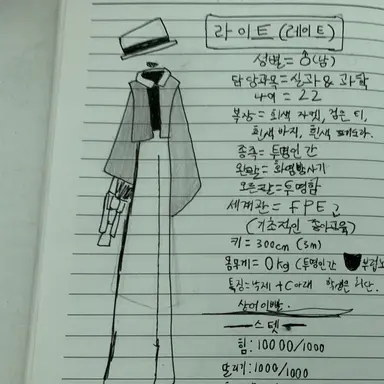 라이트 (레이트)
성별 = ♂(남)
담당과목 = 실과 & 과학
나이 = 22
복장 = 회색 자켓, 검은 티,
흰색 바지, 흰색 페도라.
종족 = 투명인간
왼팔 = 화염방사기
오른팔 = 투명함
세계관 = FPE고
(기초적인 종이교육)
키 = 300cm (3m)
몸무게 = 0kg (투명인간
특징 = 낙제 +C아래 학생은 처단.
상어이빨.
스텟
힘 : 10000/1000
달리기 : 1000/1000